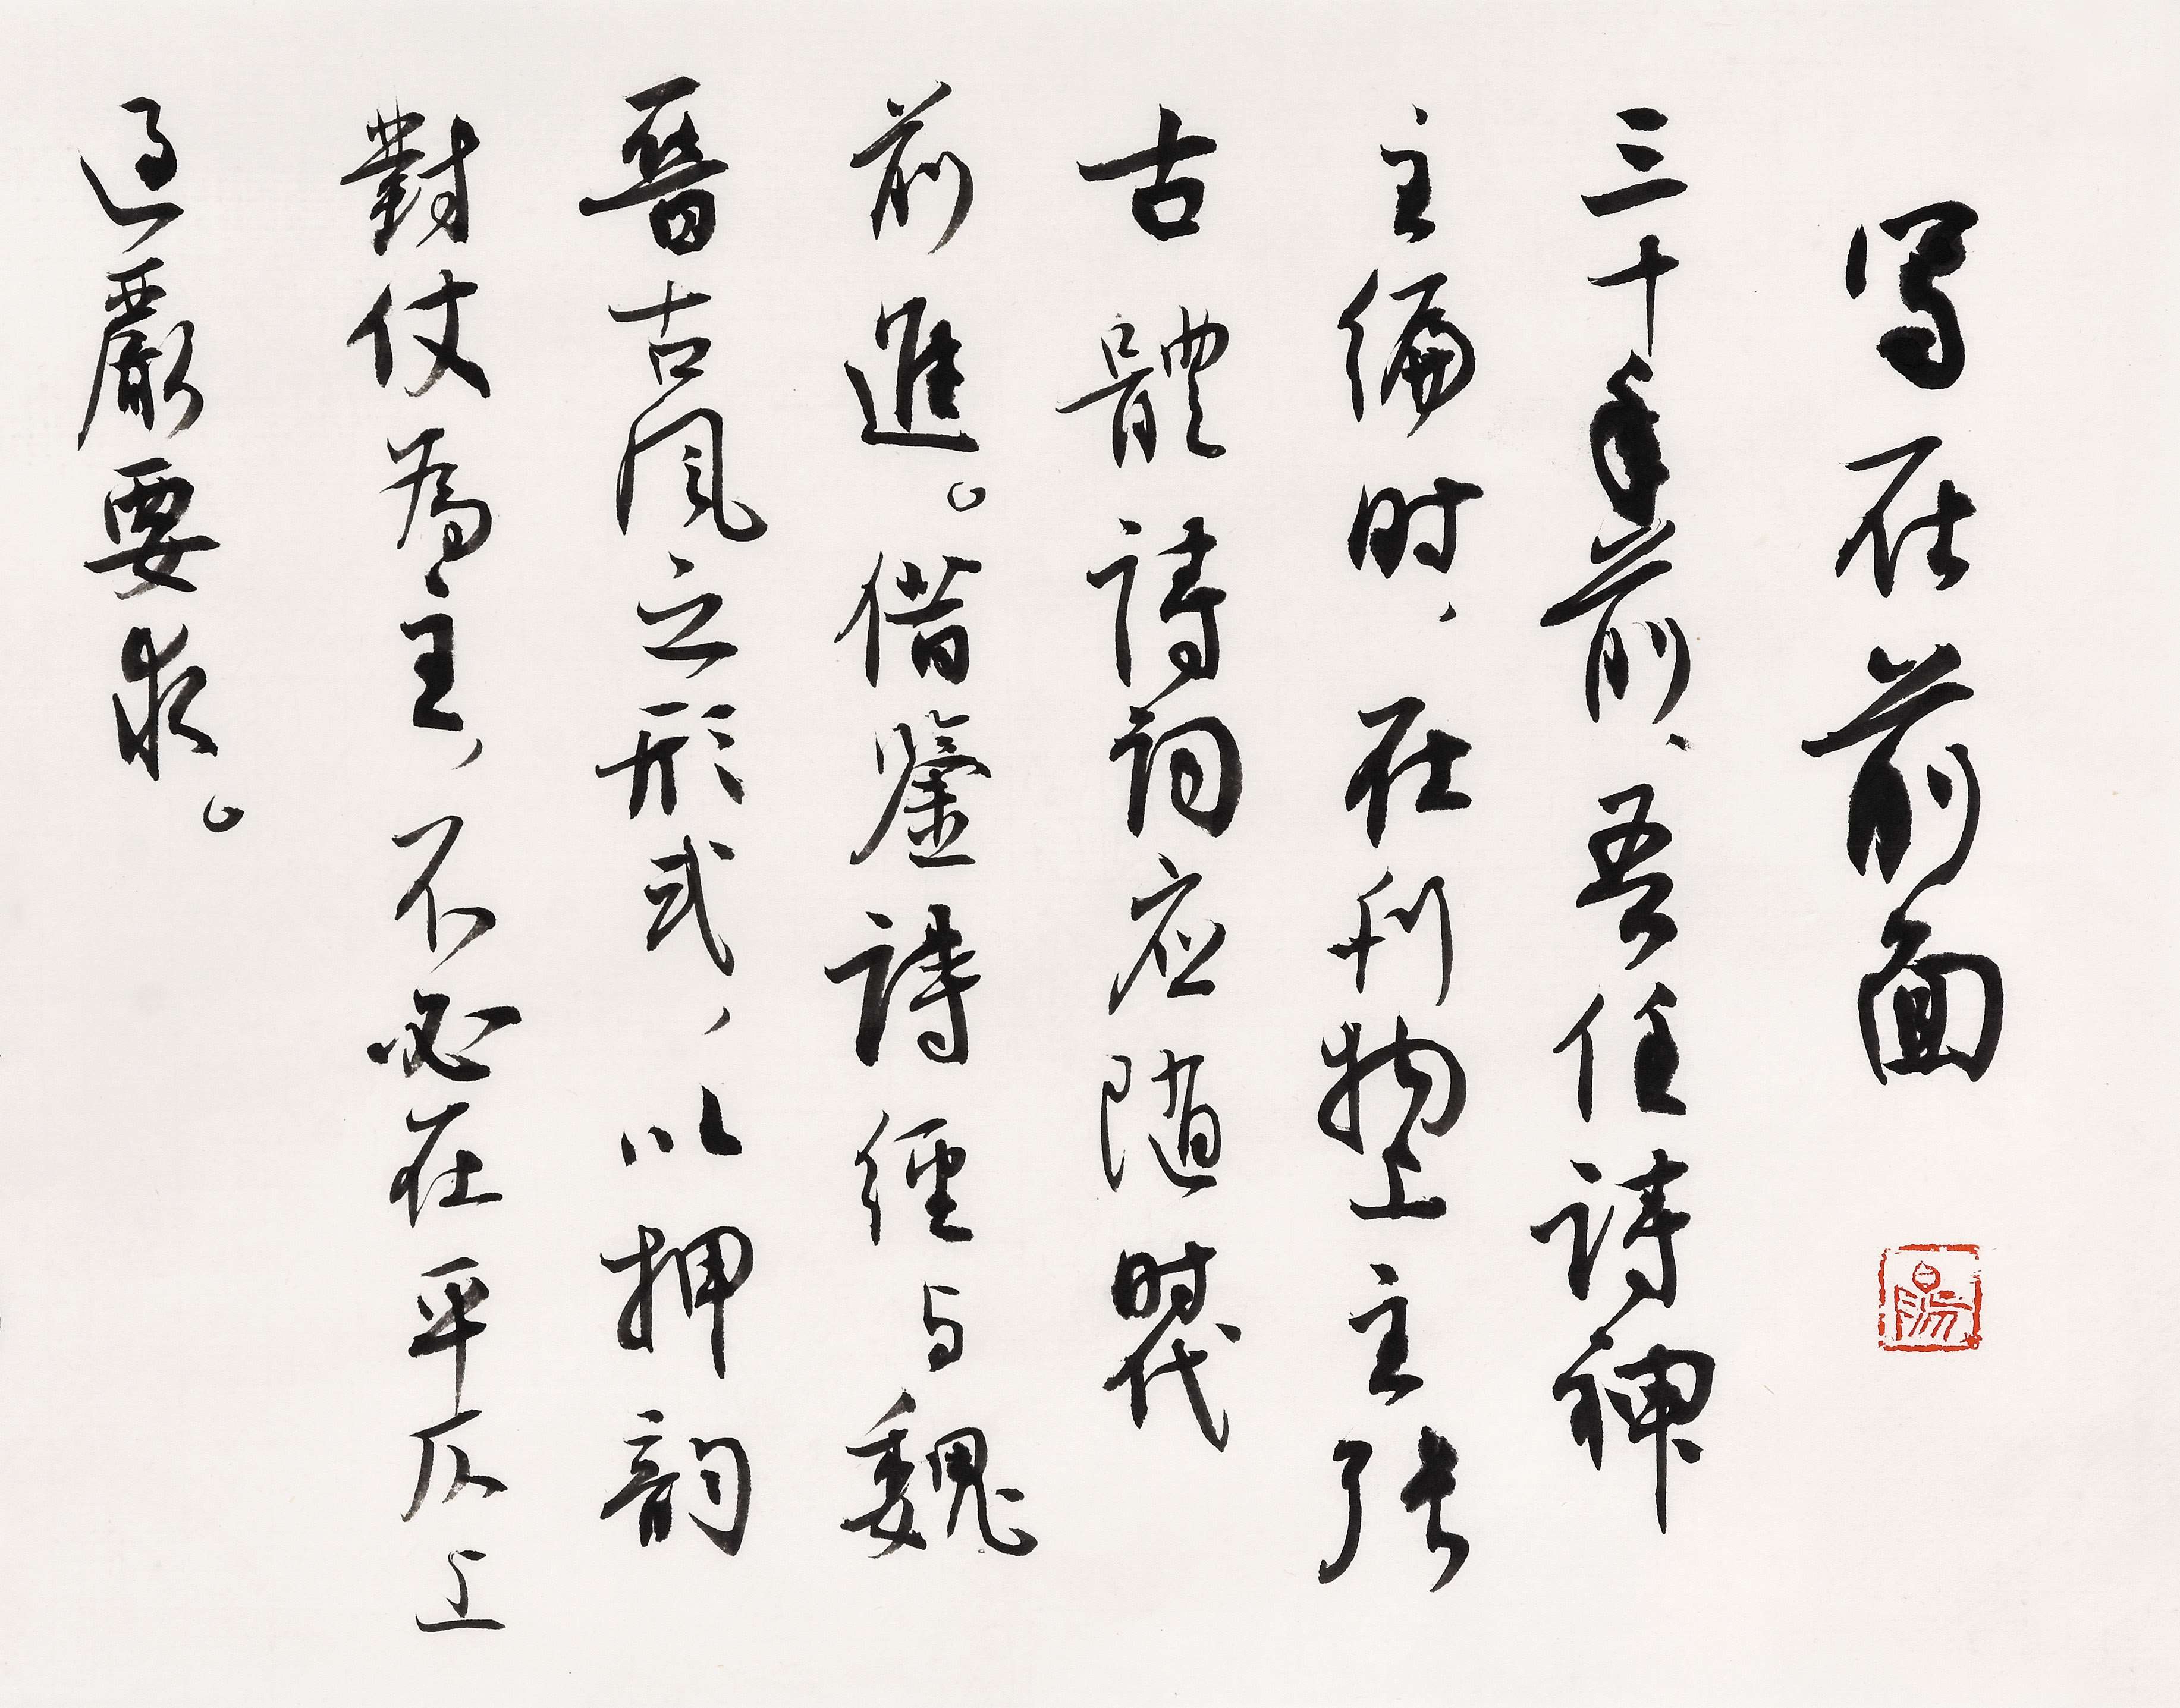 写在前面
三十年前、吾任詩神
主编时、在刊物上主张
古體詩词应随时代
前進。借鑒詩經与魏
晉古风之形式，以押韵
對仗为主，不必在平仄上
过嚴要求。